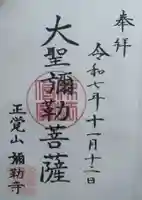 奉拝
令和七年十一月十二日
大聖彌勒菩薩
正覚山 彌勒寺